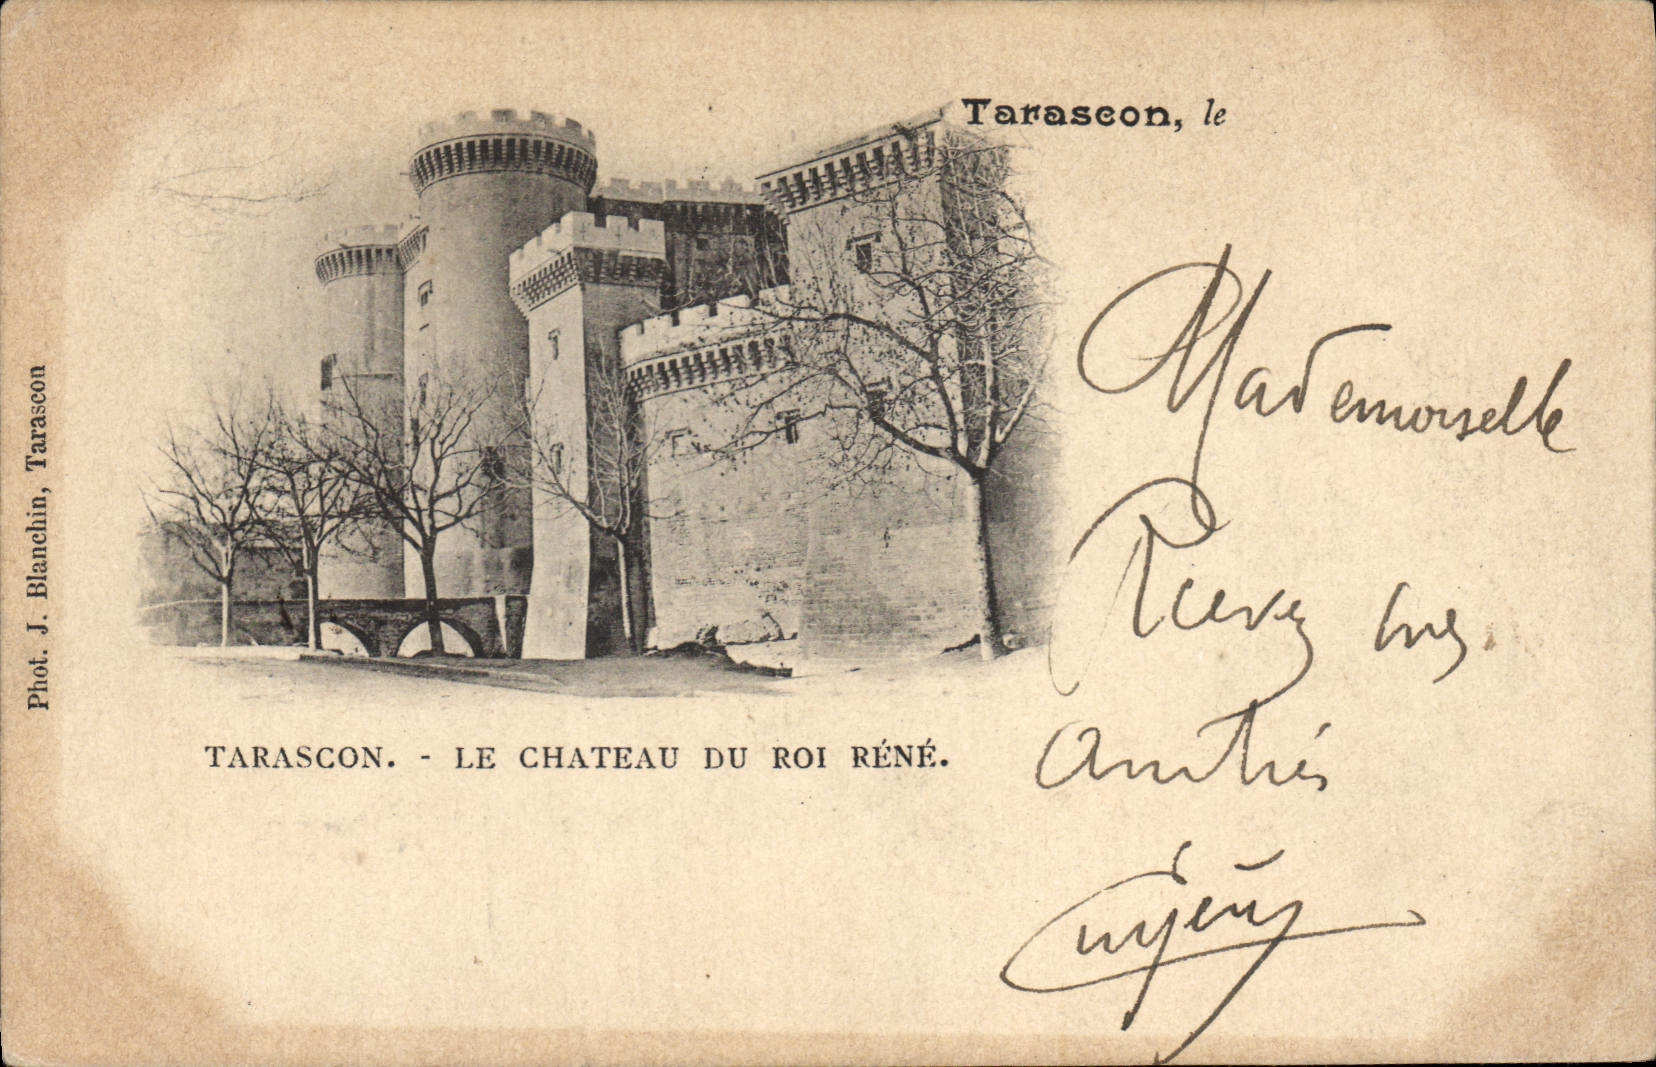 Tarascon, le
Mademoiselle
Recevez mes
amitiés
TARASCON. - LE CHATEAU DU ROI RÉNÉ.
Phot. J. Blanchin, Tarascon